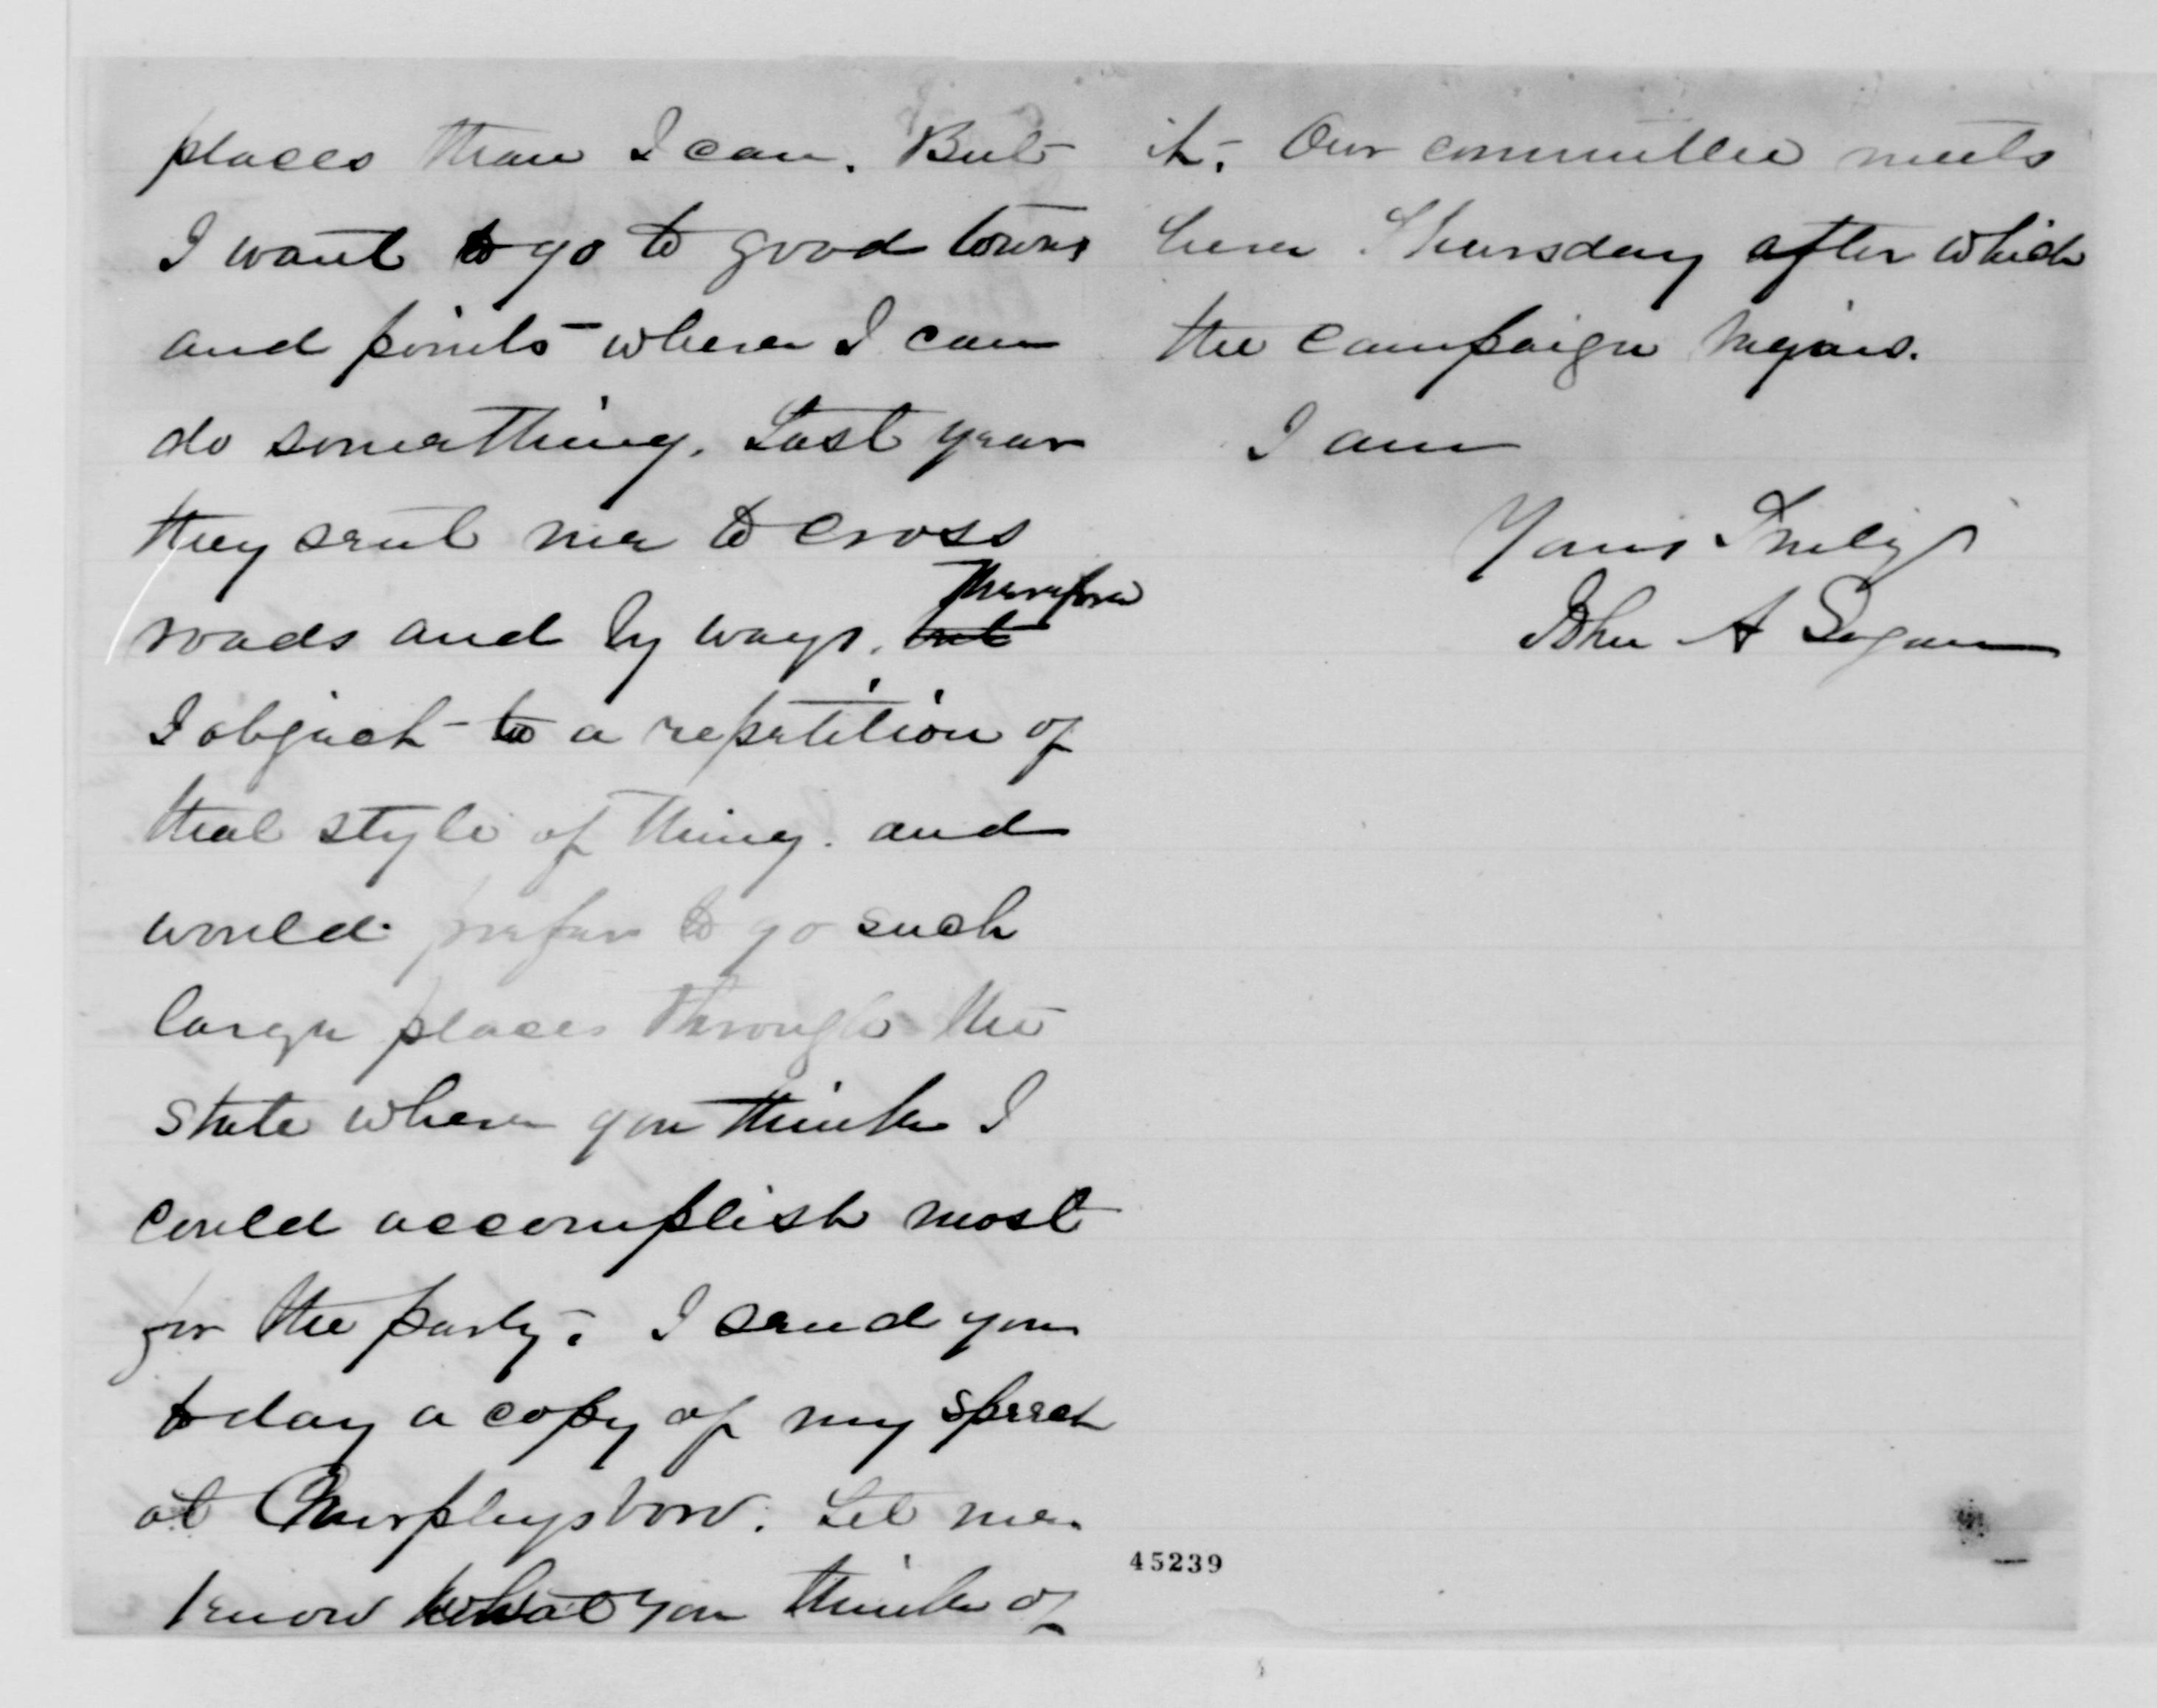 places than I can. But
I want to go to good towns
and points where I can
do something. Last year
they sent me to cross
roads and by ways. but Therefore
I object to a repetition of
that style of thing. and
would prefer to go such
large places through the
state where you think I
could accomplish most
for the party. I send you
today a copy of my speech
at Murphysboro. Let me
know what you think of
it. Our committee meets
here Thursday after which
the campaign begins.
I am
Yours Truly
John A Logan
45239